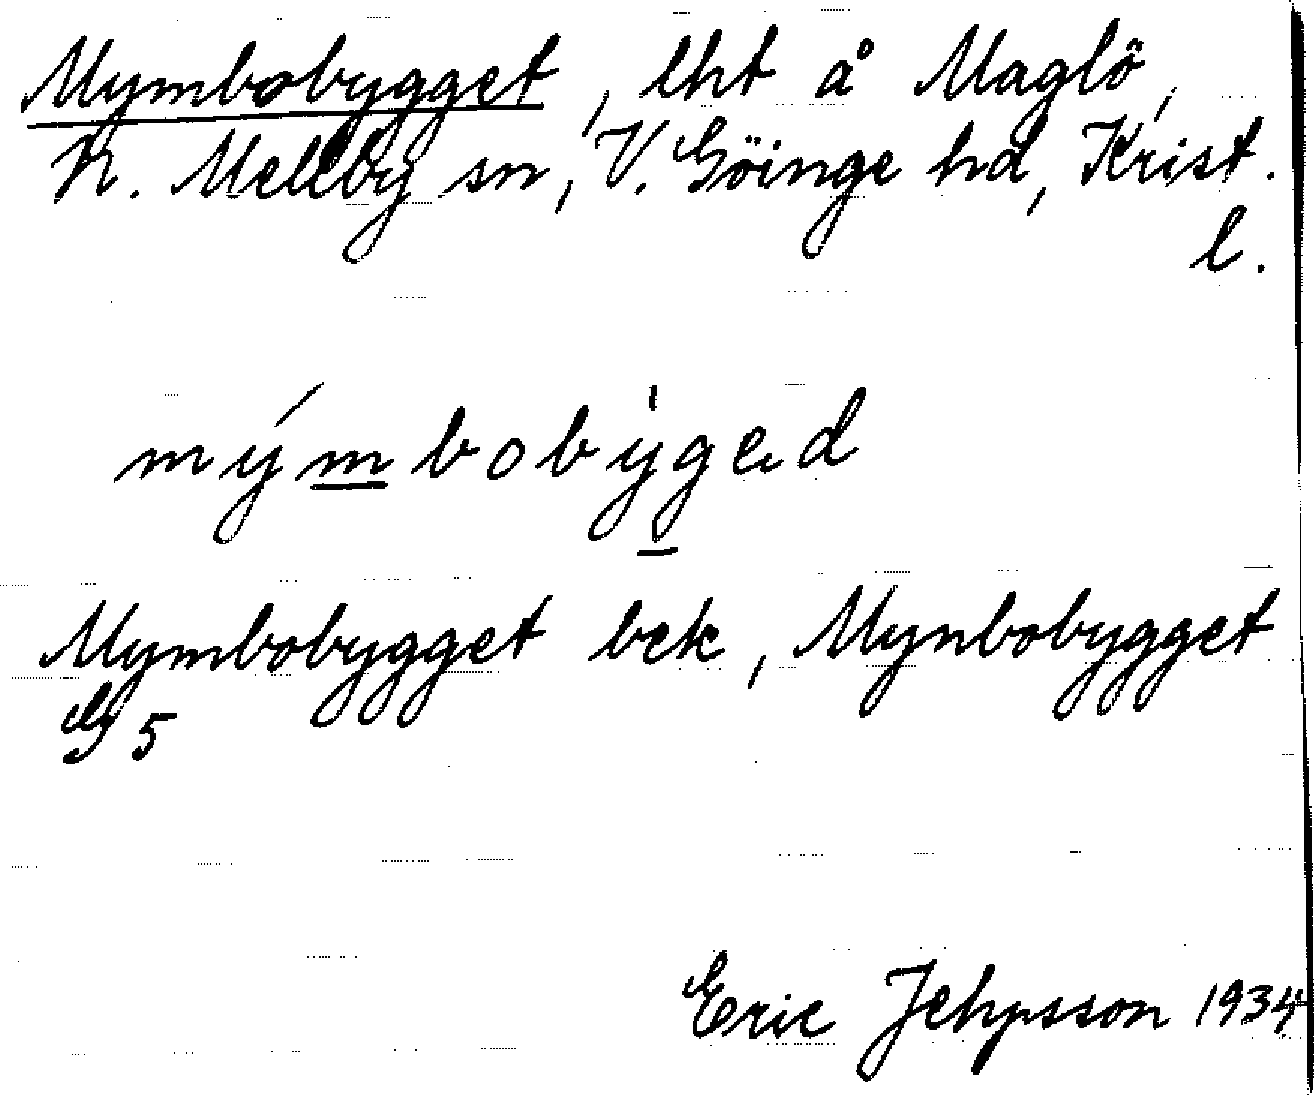 Mymbobygget, lht å Maglö,
N. Mellby sn, V. Göinge hd, Krist.
l.
mýmbobẏged
Mymbobygget bek, Mynbobygget
Eg 5
Eric Jehpsson 1934